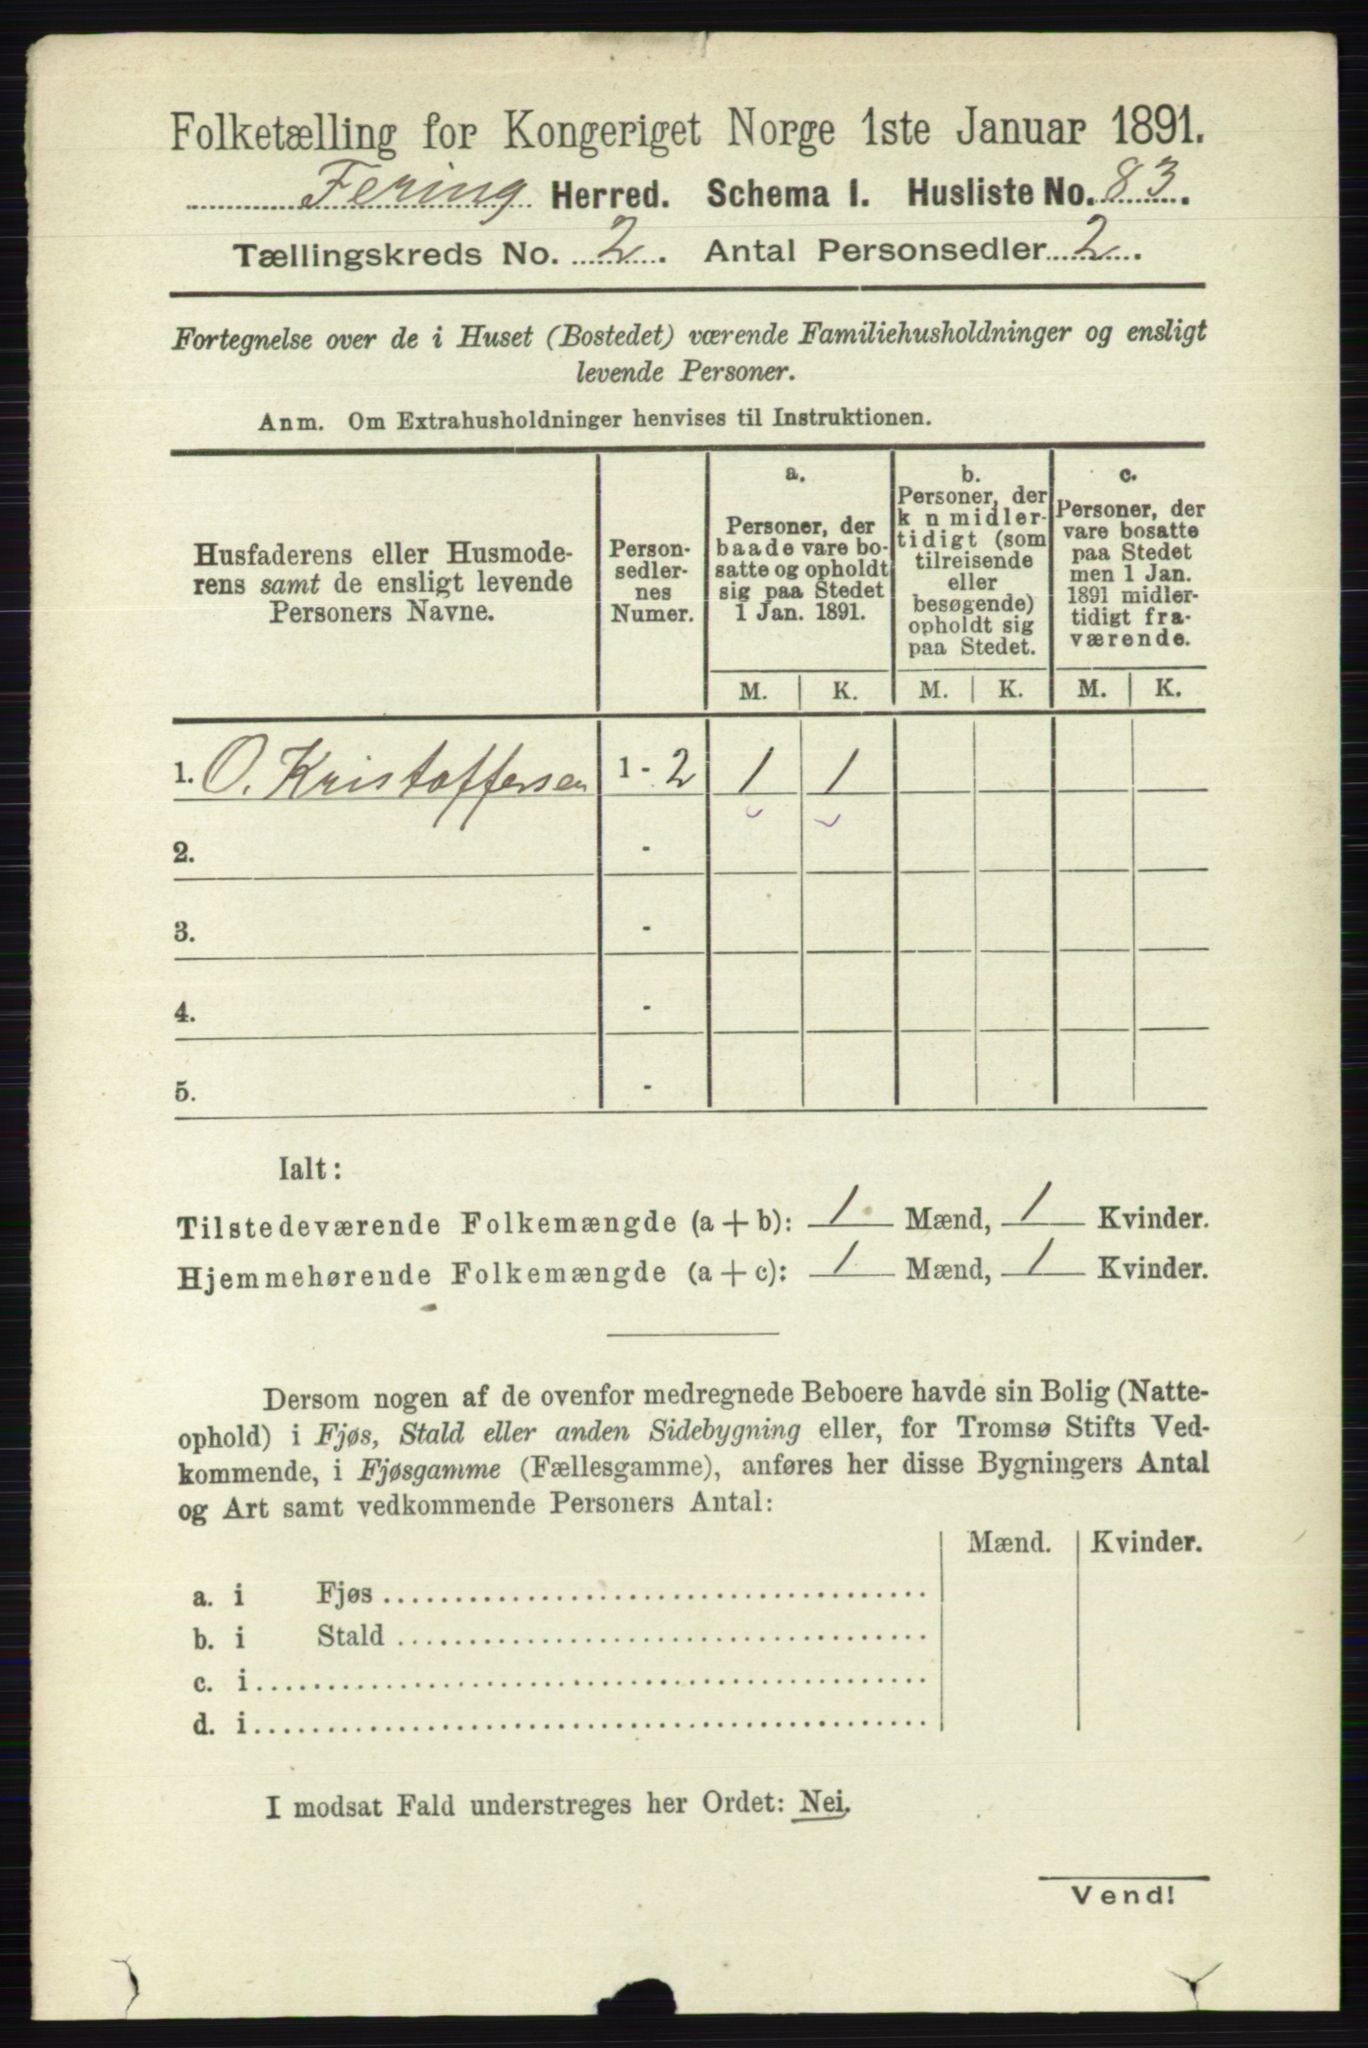 Folketælling for Kongeriget Norge 1ste Januar 1891.
Fering Herred. Schema I. Husliste No. 83.
Tællingskreds No. 2. Antal Personsedler 2.
Fortegnelse over de i Huset (Bostedet) værende Familiehusholdninger og ensligt
levende Personer.
Anm. Om Extrahusholdninger henvises til Instruktionen.
Husfaderens eller Husmode-
rens samt de ensligt levende
Personers Navne.
Person-
sedler-
nes
Numer.
a.
Personer, der
baade vare bo-
satte og opholdt
sig paa Stedet
1 Jan. 1891.
b.
Personer, der
k n midler-
tidigt (som
tilreisende
eller
besøgende)
opholdt sig
paa Stedet.
c.
Personer, der
vare bosatte
paa Stedet
men 1 Jan.
1891 midler-
tidigt fra-
værende.
M. K. M. K. M. K.
1. O. Kristoffersen 1 - 2 1 1
2. -
3. -
4. -
5. -
Ialt:
Tilstedeværende Folkemængde (a + b): 1 Mænd, 1 Kvinder.
Hjemmehørende Folkemængde (a + c): 1 Mænd, 1 Kvinder.
Dersom nogen af de ovenfor medregnede Beboere havde sin Bolig (Natte-
ophold) i Fjøs, Stald eller anden Sidebygning eller, for Tromsø Stifts Ved-
kommende, i Fjøsgamme (Fællesgamme), anføres her disse Bygningers Antal
og Art samt vedkommende Personers Antal:
Mænd. Kvinder.
a. i Fjøs
b. i Stald
c. i
d. i
I modsat Fald understreges her Ordet: Nei.
Vend!